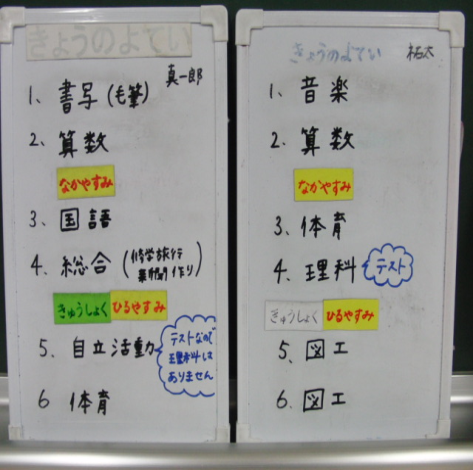 きょうのよてい
真一郎
1、書写(毛筆)
2、算数
なかやすみ
3、国語
4、総合(修学旅行
新聞作り)
きゅうしょく ひるやすみ
5、自立活動
テストなので
理科は
ありません
6 体育
きょうのよてい
祐太
1、音楽
2、算数
なかやすみ
3、体育
4、理科 テスト
きゅうしょく ひるやすみ
5、図工
6、図工